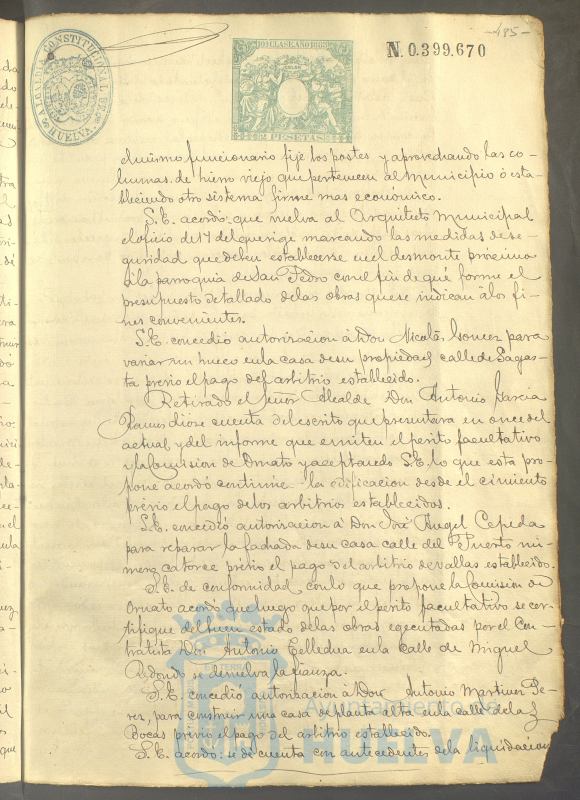 -485-
ALCALDIA CONSTITUCIONAL DE HUELVA
10ª CLASE AÑO 1889
2 PESETAS
N. 0.399.670
el mismo funcionario fije los postes y aprovechando las co-
lumnas de hierro viejo que pertenecen al Municipio ó esta-
bleciendo otro sistema firme mas económico.
S.E. acordó: que vuelva al Arquitecto Municipal
el oficio de 17 del que rige marcando las medidas de se-
guridad que deben establecerse en el desmonte próximo
á la parroquia de San Pedro con el fin de que forme el
presupuesto detallado de las obras que se indican á los fi-
nes convenientes.
S.E. concedió autorizacion á Don Nicolás para
variar un hueco en la casa de su propiedad calle de Sagas-
ta previo el pago del arbitrio establecido.
Retirado el Señor Alcalde Don Antonio Garcia
Ramos diose cuenta del escrito que presentara en once del
actual y del informe que emiten el perito facultativo
y la Comision de Ornato y aceptando S.E. lo que esta pro-
pone acordó continúe la edificacion desde el cimiento
previo el pago de los arbitrios establecidos.
S.E. concedió autorizacion á Don José Angel Cepeda
para reparar la fachada de su casa calle del Puerto nú-
mero catorce previo el pago del arbitrio de vallas establecido.
S.E. de conformidad con lo que propone la Comision de
Ornato acordó que luego que por el perito facultativo se cer-
tifique del buen estado de las obras egecutadas por el Con-
tratista Don Antonio en la Calle de Miguel
Redondo se devuelva la fianza.
S.E. concedió autorizacion á Don Antonio Martinez Pe-
rez, para construir una casa de planta alta en la calle de las
Bocas previo el pago del arbitrio establecido.
S.E. acordó: se dé cuenta con antecedentes de la liquidacion
Ayuntamiento de
HUELVA